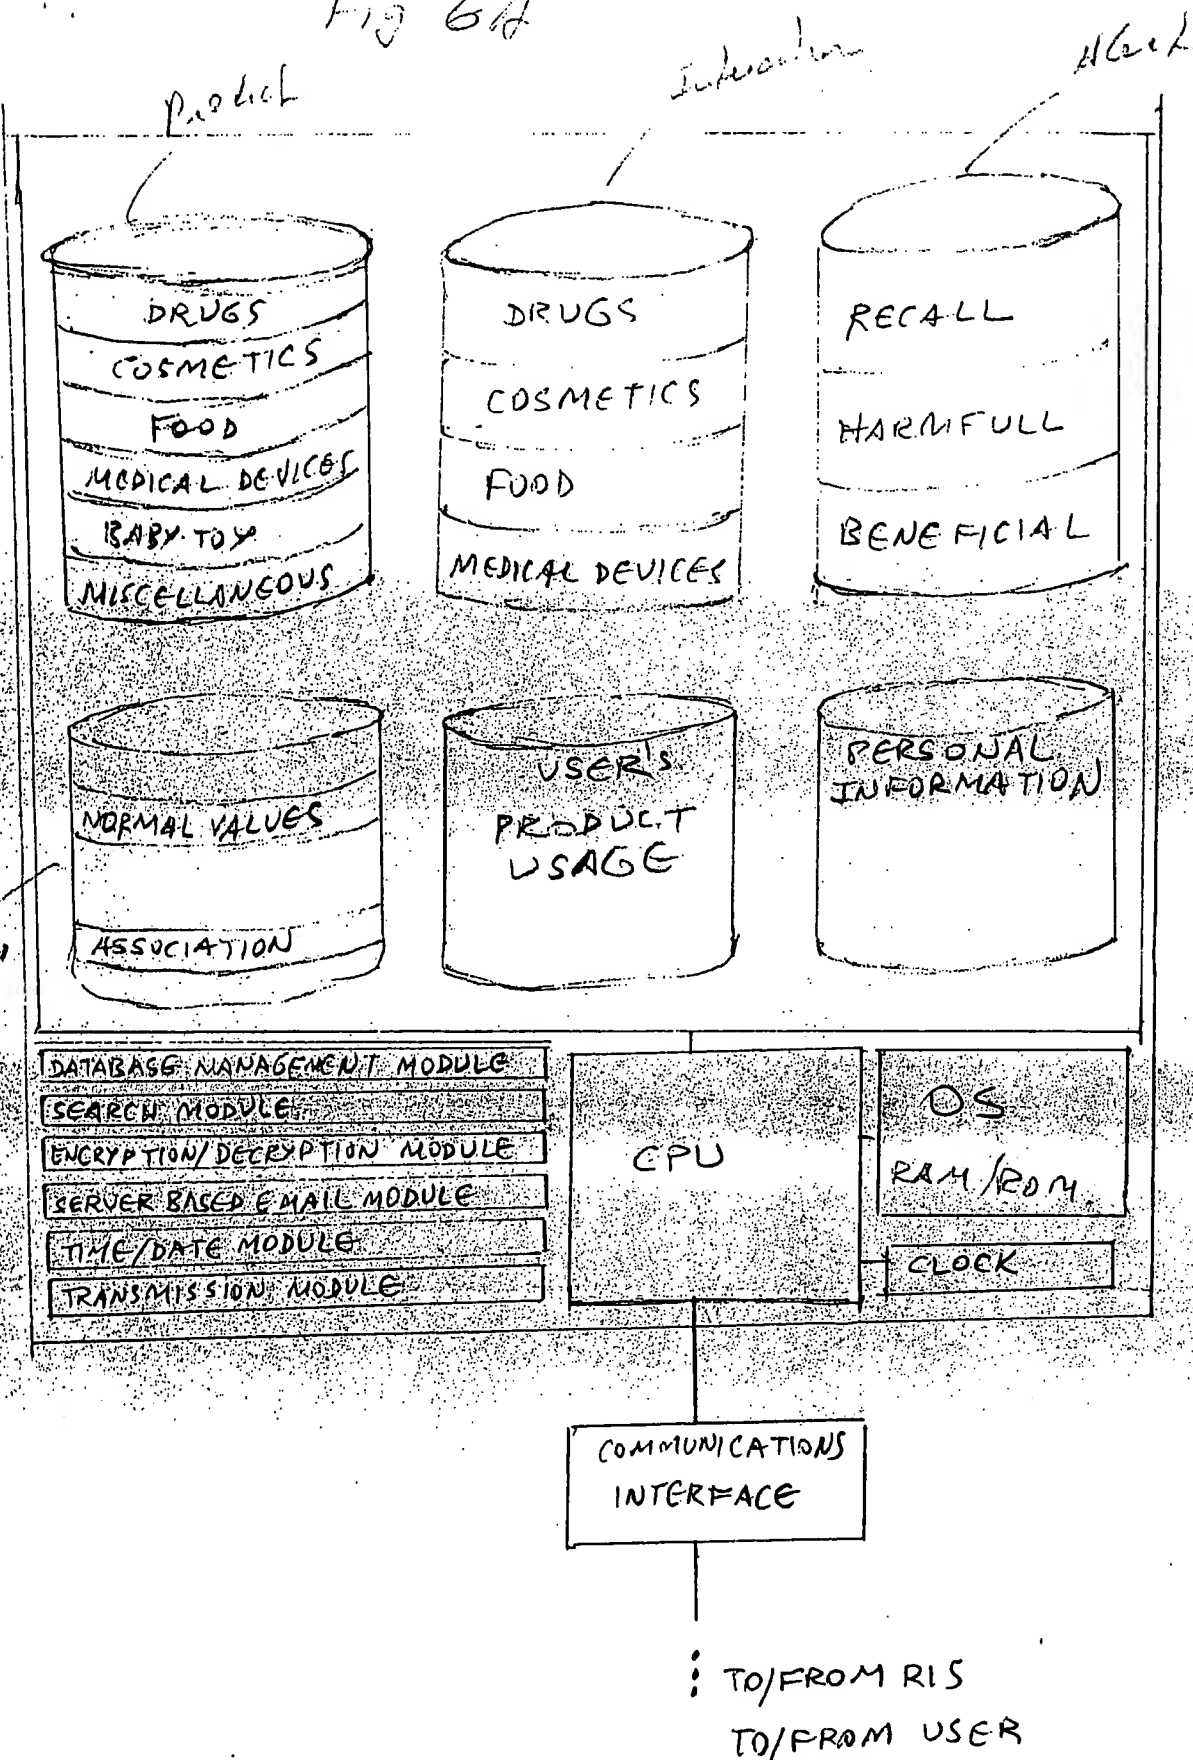 Fig 6A
Product
Interaction
Alert
DRUGS
COSMETICS
FOOD
MEDICAL DEVICES
BABY TOY
MISCELLANEOUS
DRUGS
COSMETICS
FOOD
MEDICAL DEVICES
RECALL
HARMFULL
BENEFICIAL
NORMAL VALUES
ASSOCIATION
USER'S
PRODUCT
USAGE
PERSONAL
INFORMATION
DATABASE MANAGEMENT MODULE
SEARCH MODULE
ENCRYPTION/DECRYPTION MODULE
SERVER BASED EMAIL MODULE
TIME/DATE MODULE
TRANSMISSION MODULE
CPU
OS
RAM/ROM
CLOCK
COMMUNICATIONS
INTERFACE
TO/FROM RIS
TO/FROM USER